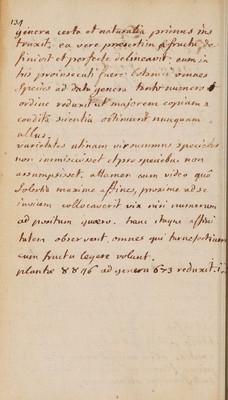 134
genera certa et naturalia primus ins
truxit, ea vere præsertim a fructu de
finivit et perfecte delineavit. eum in
his proinsecuti fuere botanici omnes
species ad data genera tanto numero &
ordine reduxit ut majorem copiam a
condita scientia obtinuerit nunquam
allus.
varietates utinam vir summus speciebus
non immiscuisset et pro speciebus non
assumpsisset. attamen cum video quod
solertia maxime affines, proxime ad se
invicem collocaverit vix nisi numerum
ad positum quæro. hanc itaque affini
tatem observent, omnes qui turnefortium
cum fructu legere volunt.
plantæ 8846 ad genera 673 reduxit.